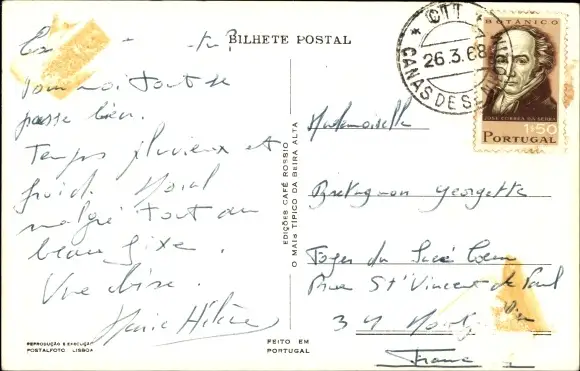 BILHETE POSTAL
Pour moi tout se
passe bien.
Temps pluvieux et
froid. Moral
malgré tout au
beau fixe.
Une bise.
Marie Hélène
REPRODUÇÃO E EXECUÇÃO
POSTALFOTO LISBOA
EDIÇÕES CAFÉ ROSSIO
O MAIS TÍPICO DA BEIRA ALTA
FEITO EM
PORTUGAL
CTT
26.3.68
CANAS DE SENHORIM
BOTÂNICO
JOSÉ CORREA DA SERRA
1$50
PORTUGAL
Mademoiselle
Georgette
Foyer du Sacré Coeur
Rue St Vincent de Paul
34
France